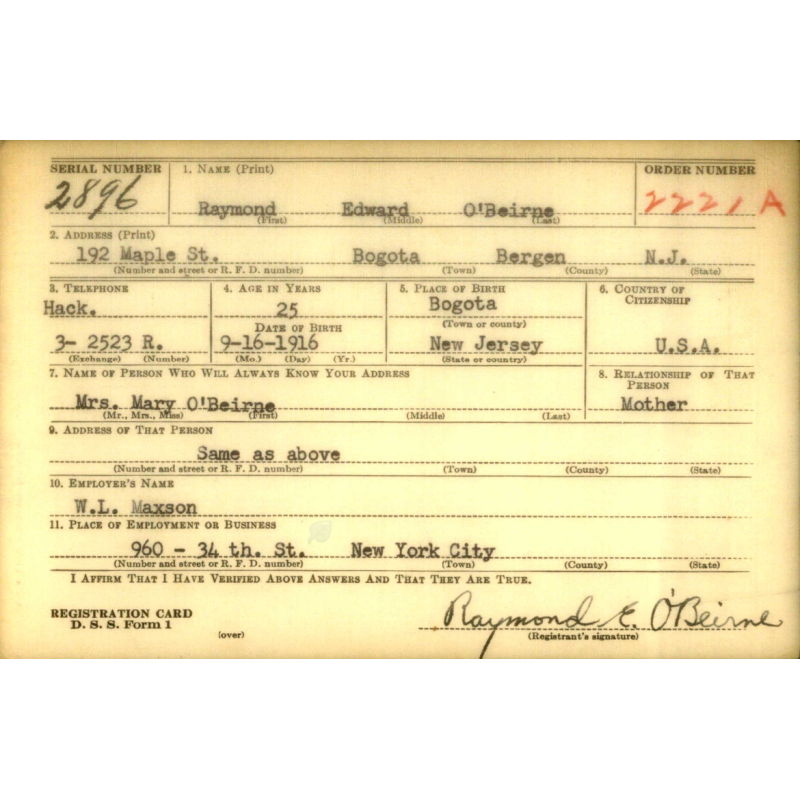 SERIAL NUMBER 1. NAME (Print) ORDER NUMBER
2896 Raymond Edward O'Beirne 2221 A
(First) (Middle) (Last)
2. ADDRESS (Print)
192 Maple St. Bogota Bergen N.J.
(Number and street or R. F. D. number) (Town) (County) (State)
3. TELEPHONE 4. AGE IN YEARS 5. PLACE OF BIRTH 6. COUNTRY OF CITIZENSHIP
Hack. 25 Bogota
DATE OF BIRTH (Town or county)
3- 2523 R. 9-16-1916 New Jersey U.S.A.
(Exchange) (Number) (Mo.) (Day) (Yr.) (State or country)
7. NAME OF PERSON WHO WILL ALWAYS KNOW YOUR ADDRESS 8. RELATIONSHIP OF THAT PERSON
Mrs. Mary O'Beirne Mother
(Mr., Mrs., Miss) (First) (Middle) (Last)
9. ADDRESS OF THAT PERSON
Same as above
(Number and street or R. F. D. number) (Town) (County) (State)
10. EMPLOYER'S NAME
W.L. Maxson
11. PLACE OF EMPLOYMENT OR BUSINESS
960 - 34 th. St. New York City
(Number and street or R. F. D. number) (Town) (County) (State)
I AFFIRM THAT I HAVE VERIFIED ABOVE ANSWERS AND THAT THEY ARE TRUE.
REGISTRATION CARD
D. S. S. Form 1 (over)
Raymond E. O'Beirne
(Registrant's signature)